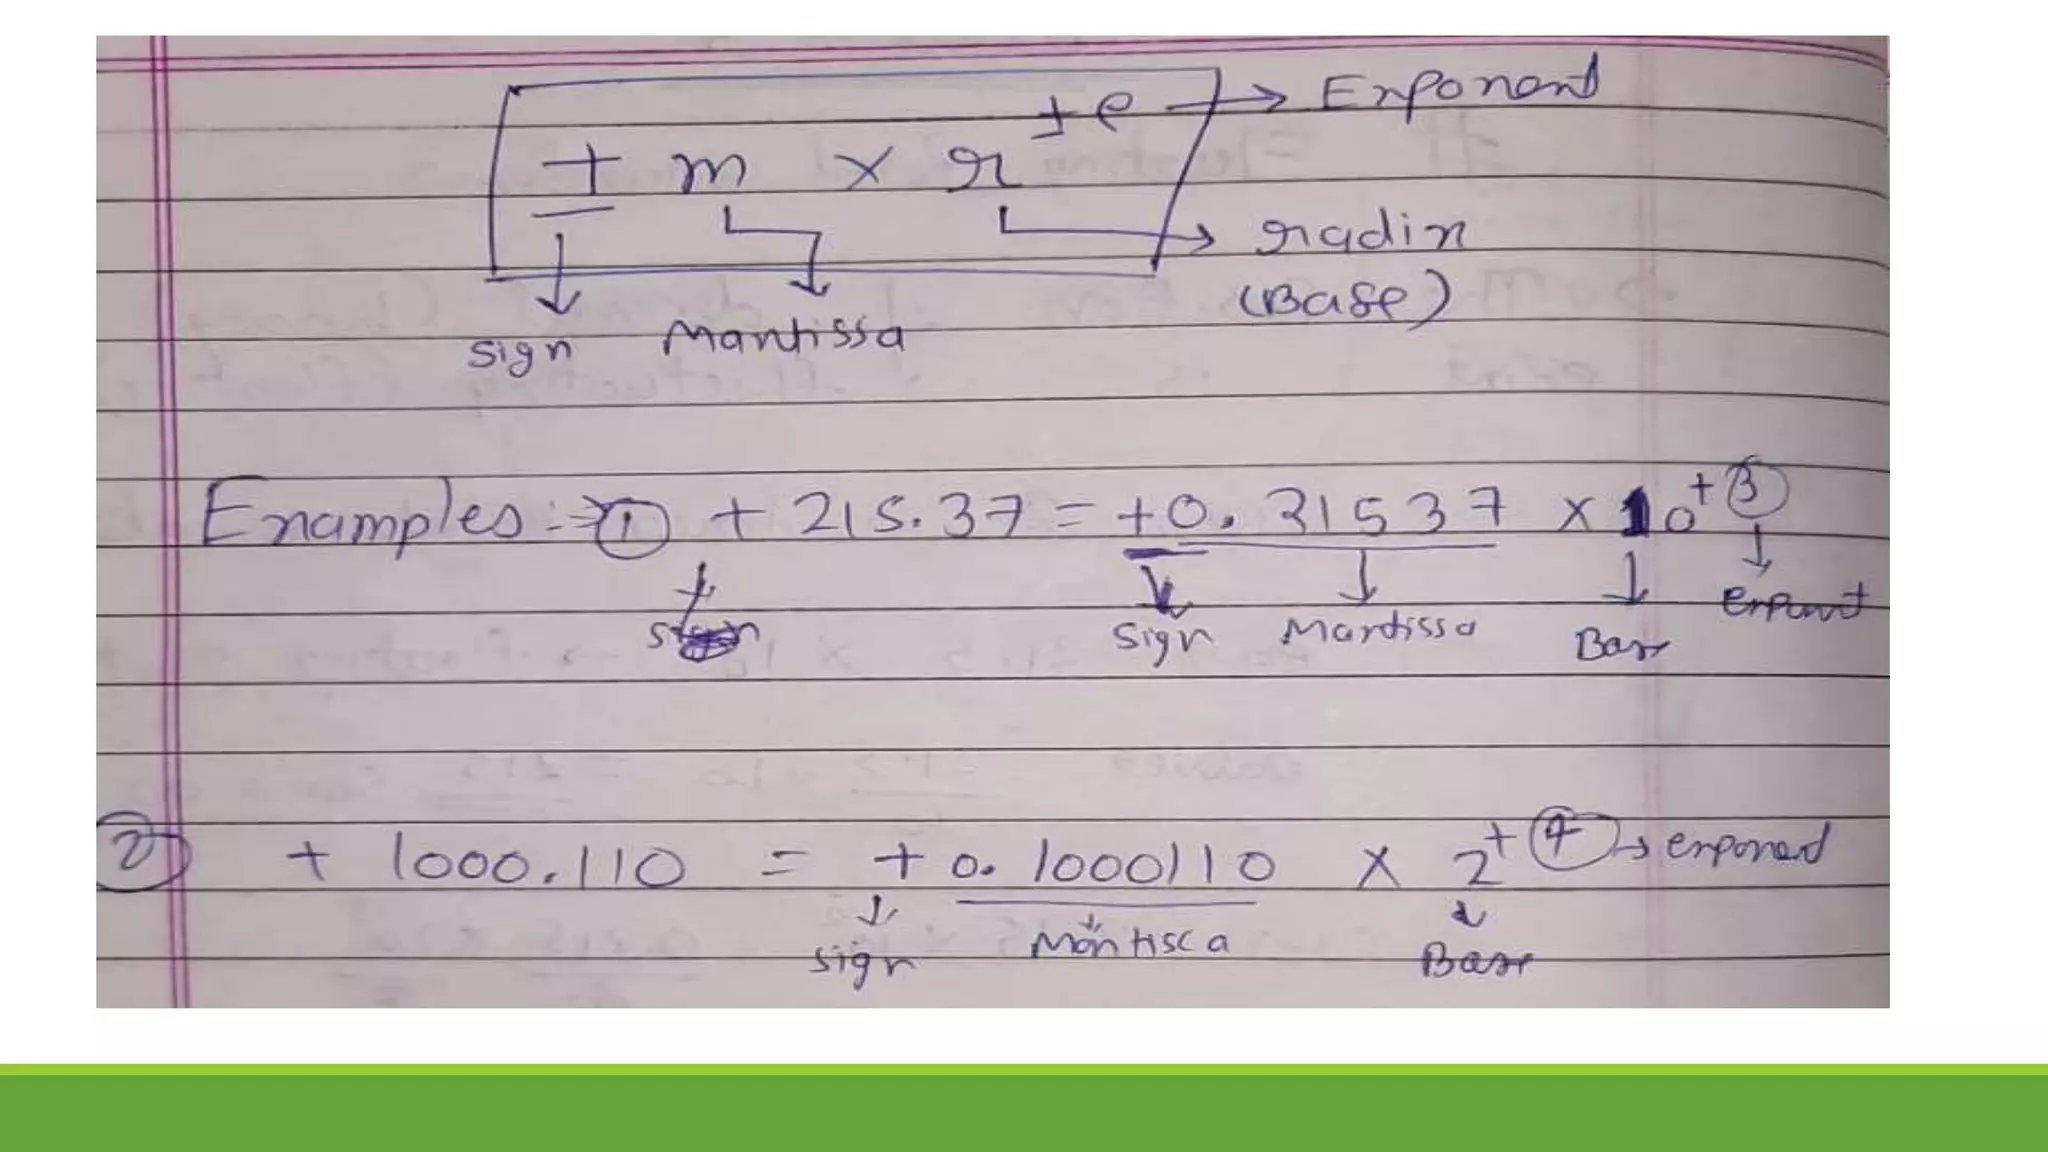 ± m × r^±e → Exponent
→ radix
(Base)
sign Mantissa
Examples :⇒ ① + 215.37 = +0.21537 × 10^+③
sign Mantissa Base Exponent
② + 1000.110 = + 0.1000110 × 2^+④ → exponent
sign Mantissa Base